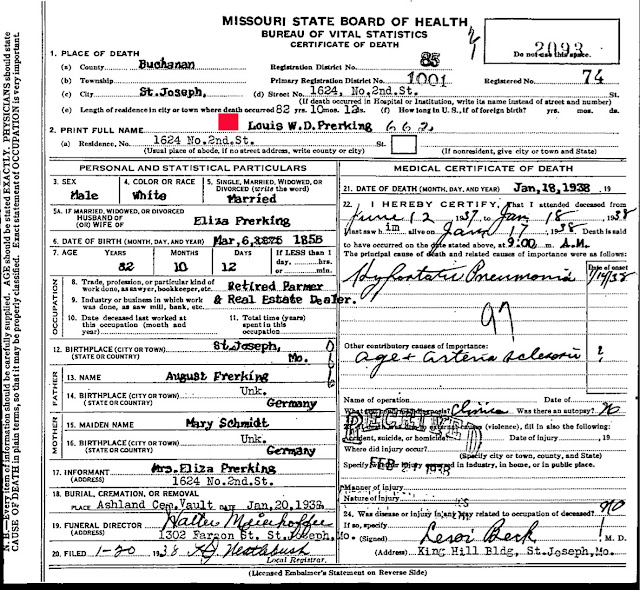 MISSOURI STATE BOARD OF HEALTH
BUREAU OF VITAL STATISTICS
CERTIFICATE OF DEATH
2093
Do not use this space.
1. PLACE OF DEATH
(a) County Buchanan Registration District No. 85
(b) Township Primary Registration District No. 1001 Registered No. 74
(c) City St.Joseph, (d) Street No. 1624, No.2nd.St.
(If death occurred in Hospital or Institution, write its name instead of street and number)
(e) Length of residence in city or town where death occurred 82 yrs. 10 mos. 12 ds. (f) How long in U. S., if of foreign birth? yrs. mos. ds.
2. PRINT FULL NAME Louis W.D.Frerking 662
(a) Residence, No. 1624 No.2nd.St. St.
(Usual place of abode, if no street address, write county or city) (If nonresident, give city or town and State)
PERSONAL AND STATISTICAL PARTICULARS
3. SEX Male
4. COLOR OR RACE White
5. SINGLE, MARRIED, WIDOWED, OR DIVORCED (write the word) Married
5A. IF MARRIED, WIDOWED, OR DIVORCED
HUSBAND OF
(OR) WIFE OF Eliza Frerking
6. DATE OF BIRTH (MONTH, DAY, AND YEAR) Mar,6,1875 1855
7. AGE YEARS MONTHS DAYS If LESS than 1 day, hrs. or min.
82 10 12
OCCUPATION
8. Trade, profession, or particular kind of work done, as sawyer, bookkeeper, etc. Retired Farmer
9. Industry or business in which work was done, as saw mill, bank, etc. & Real Estate Dealer.
10. Date deceased last worked at this occupation (month and year)
11. Total time (years) spent in this occupation
12. BIRTHPLACE (CITY OR TOWN) St.Joseph,
(STATE OR COUNTRY) Mo.
FATHER
13. NAME August Frerking
14. BIRTHPLACE (CITY OR TOWN) Unk.
(STATE OR COUNTRY) Germany
MOTHER
15. MAIDEN NAME Mary Schmidt
16. BIRTHPLACE (CITY OR TOWN) Unk.
(STATE OR COUNTRY) Germany
17. INFORMANT Mrs.Eliza Frerking
(ADDRESS) 1624 No.2nd.St.
18. BURIAL, CREMATION, OR REMOVAL
PLACE Ashland Cem.Vault DATE Jan,20,1938
19. FUNERAL DIRECTOR Walter Meierhoffer
(ADDRESS) 1302 Faraon St. St.Joseph,Mo.
20. FILED 1-20 1938
Local Registrar.
MEDICAL CERTIFICATE OF DEATH
21. DATE OF DEATH (MONTH, DAY, AND YEAR) Jan,18,1938 19
22. I HEREBY CERTIFY, That I attended deceased from
June 12 1937, to Jan 18, 1938
I last saw him alive on Jan 17, 1938 Death is said
to have occurred on the date stated above, at 9:00 m. A.M.
The principal cause of death and related causes of importance were as follows:
Date of onset
Hypostatic Pneumonia
97
Other contributory causes of importance:
Age & Arteria sclerosis ?
Name of operation Date of
What test confirmed diagnosis? Clinical Was there an autopsy? No
RECEIVED
(violence), fill in also the following:
Accident, suicide, or homicide Date of injury , 19
Where did injury occur?
(Specify city or town, county, and State)
Specify in industry, in home, or in public place.
FEB 1938
Manner of injury
Nature of injury
24. Was disease or injury in any way related to occupation of deceased? No
If so, specify
(Signed) Leroi Beck M. D.
(Address) King Hill Bldg, St.Joseph,Mo.
(Licensed Embalmer's Statement on Reverse Side)
N. B.—Every item of information should be carefully supplied. AGE should be stated EXACTLY. PHYSICIANS should state
CAUSE OF DEATH in plain terms, so that it may be properly classified. Exact statement of OCCUPATION is very important.